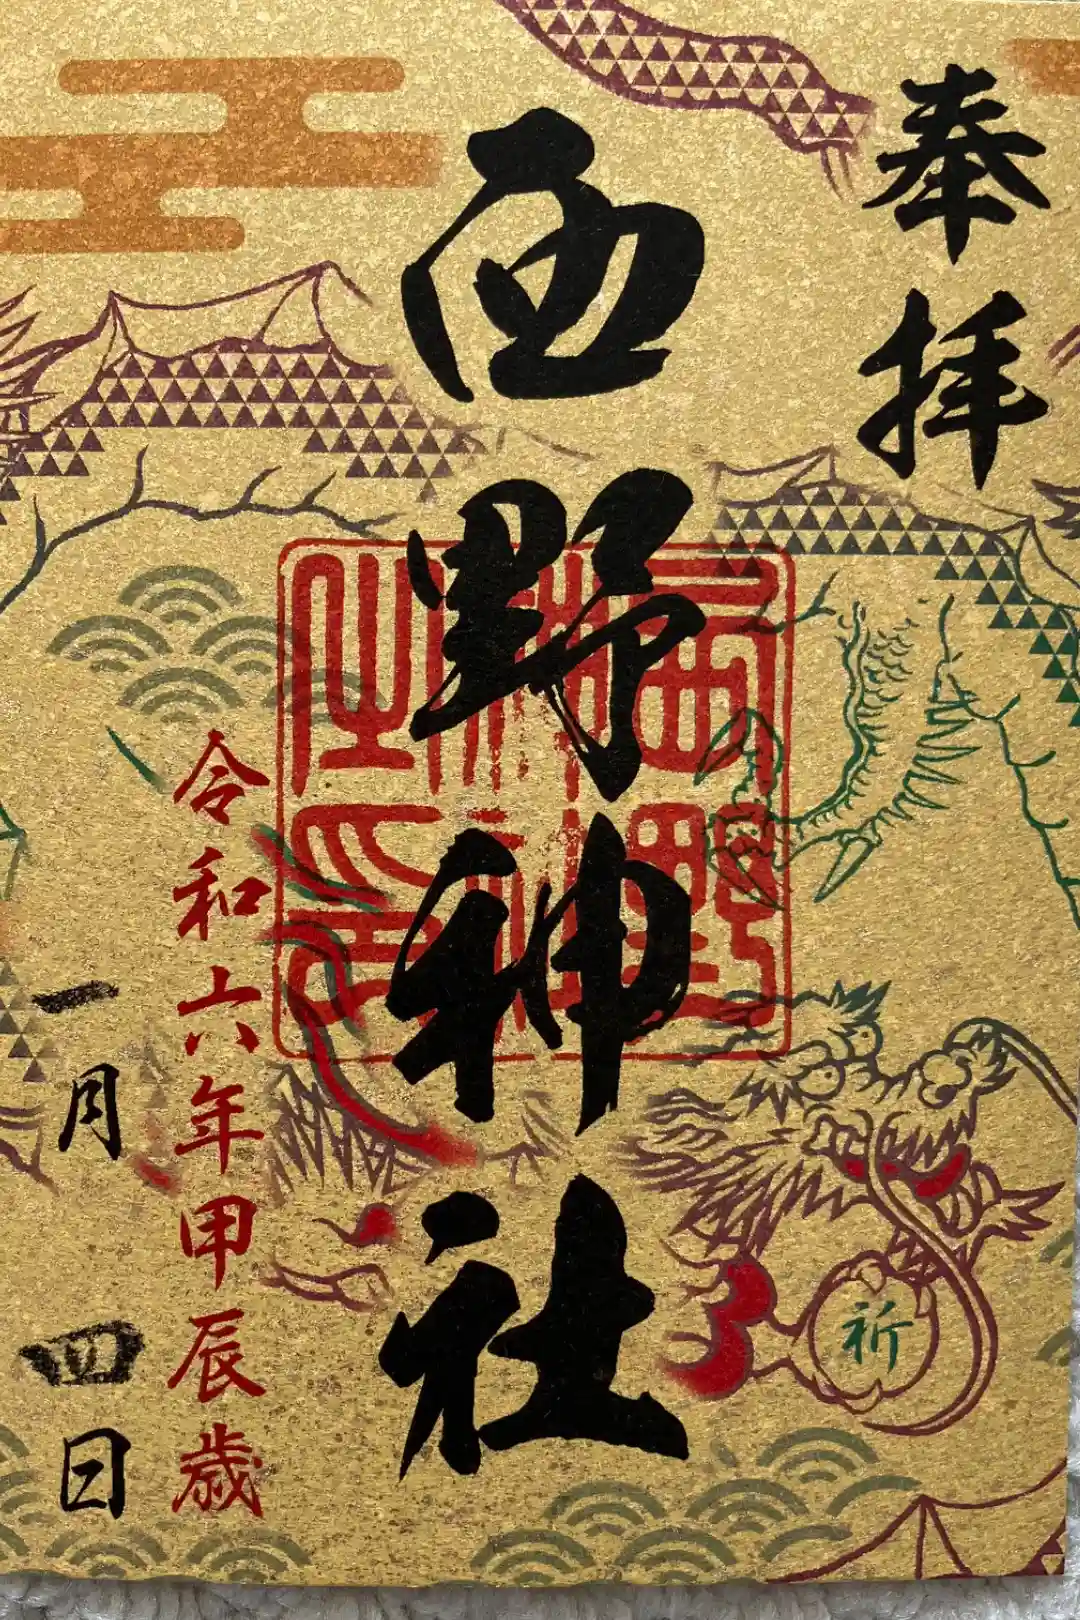 奉拝
西野神社
西野神社之印
令和六年甲辰歳
一月四日
祈